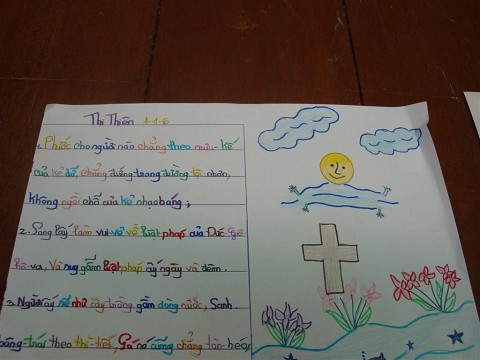 Thi Thiên 1-1-6
1. Phước cho người nào chẳng theo mưu-kế
của kẻ dữ, chẳng đứng trong đường tội nhân,
không ngồi chỗ của kẻ nhạo báng;
2. Song lấy làm vui-vẻ về luật pháp của Đức Giê
hô-va, Và suy gẫm luật pháp ấy ngày và đêm.
3. Người ấy sẽ như cây trồng gần dòng nước, Sanh
bông-trái theo thì-tiết, Lá nó cũng chẳng tàn-héo